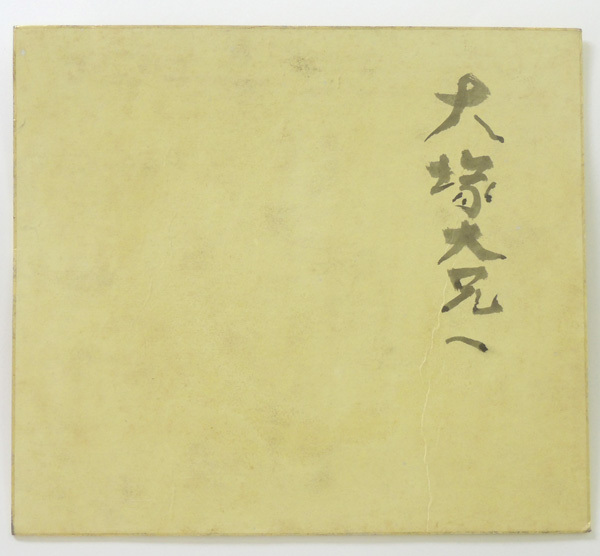 大塚大兄へ